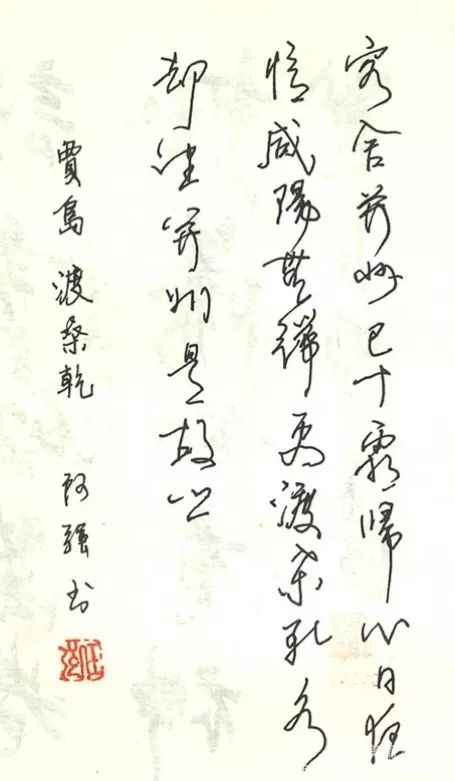 客舍并州已十霜歸心日夜
憶咸陽無端更渡桑乾水
却望并州是故乡
賈島 渡桑乾 阿強书